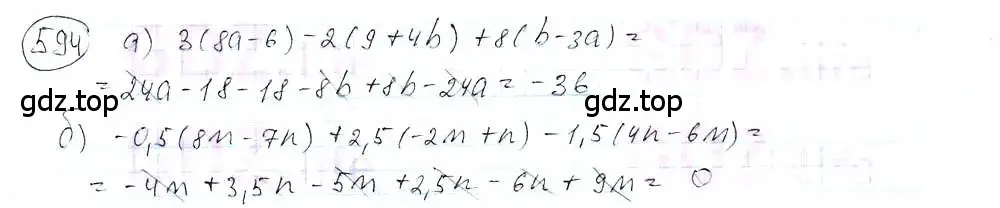 594 а) 3(8a-6) - 2(9+4b) + 8(b-3a) =
= 24a - 18 - 18 - 8b + 8b - 24a = -36
gdz.top gdz.top
б) -0,5(8m - 7n) + 2,5(-2m + n) - 1,5(4n - 6m) =
= -4m + 3,5n - 5m + 2,5n - 6n + 9m = 0
gdz.top gdz.top